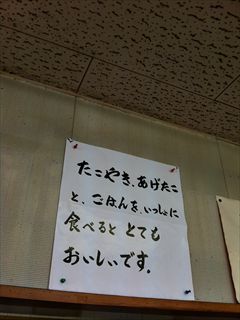 たこやき、あげたこ
と、ごはんを、いっしょに
食べると とても
おいしいです。